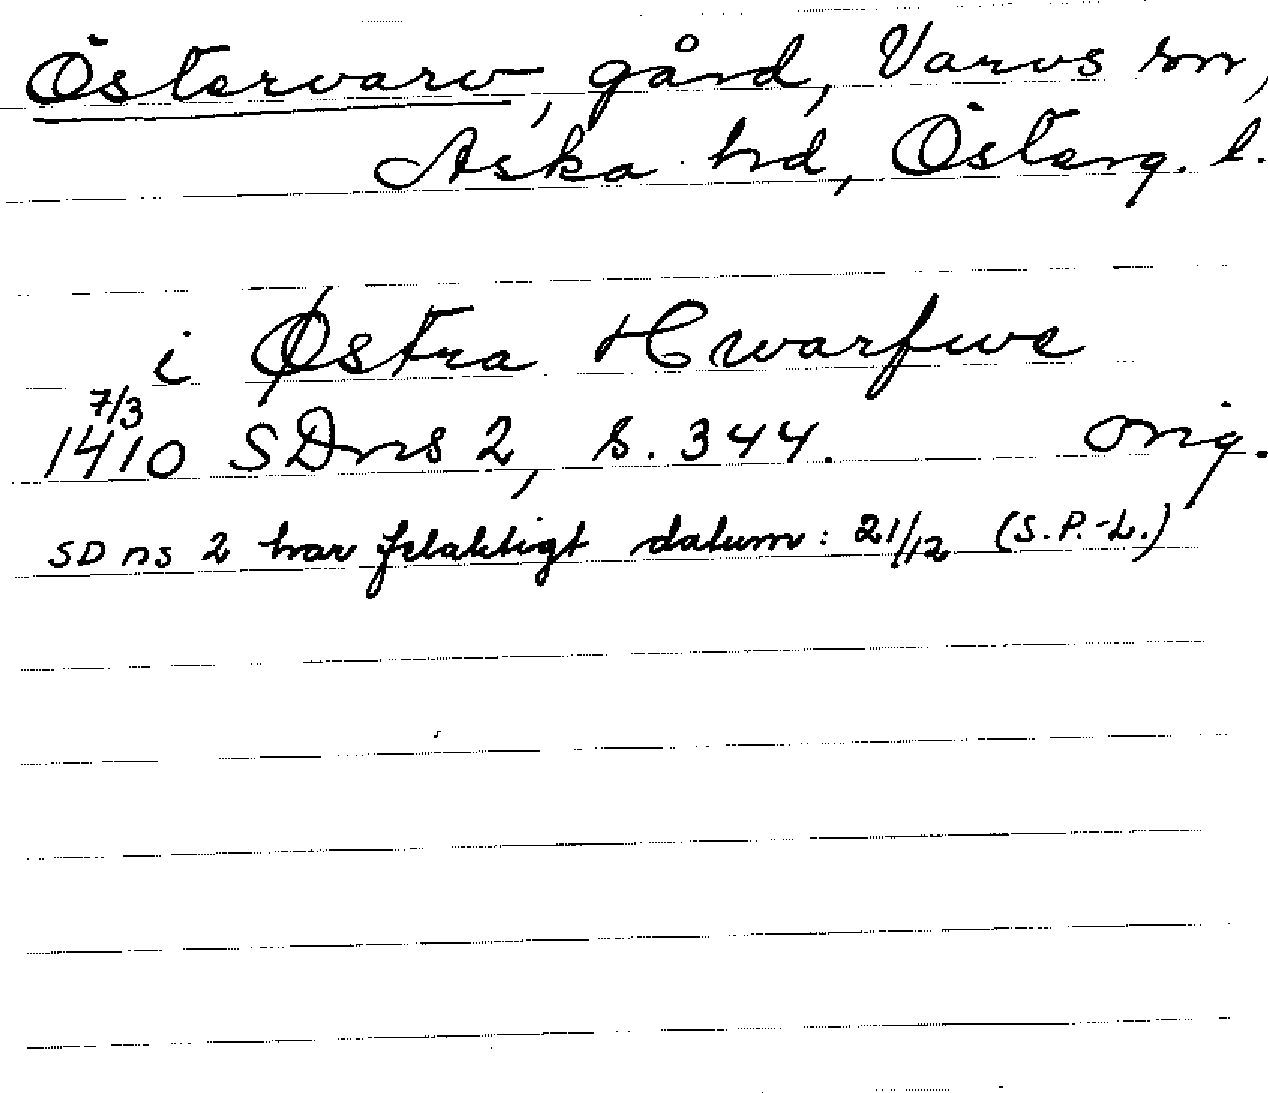 Östervarv, gård, Varvs sn,
Aska hd, Österg. l.
i Østra Hwarfwe
7/3
1410 SDns 2, s. 344. orig.
SD ns 2 har felaktigt datum: 21/12 (S.P.-L.)